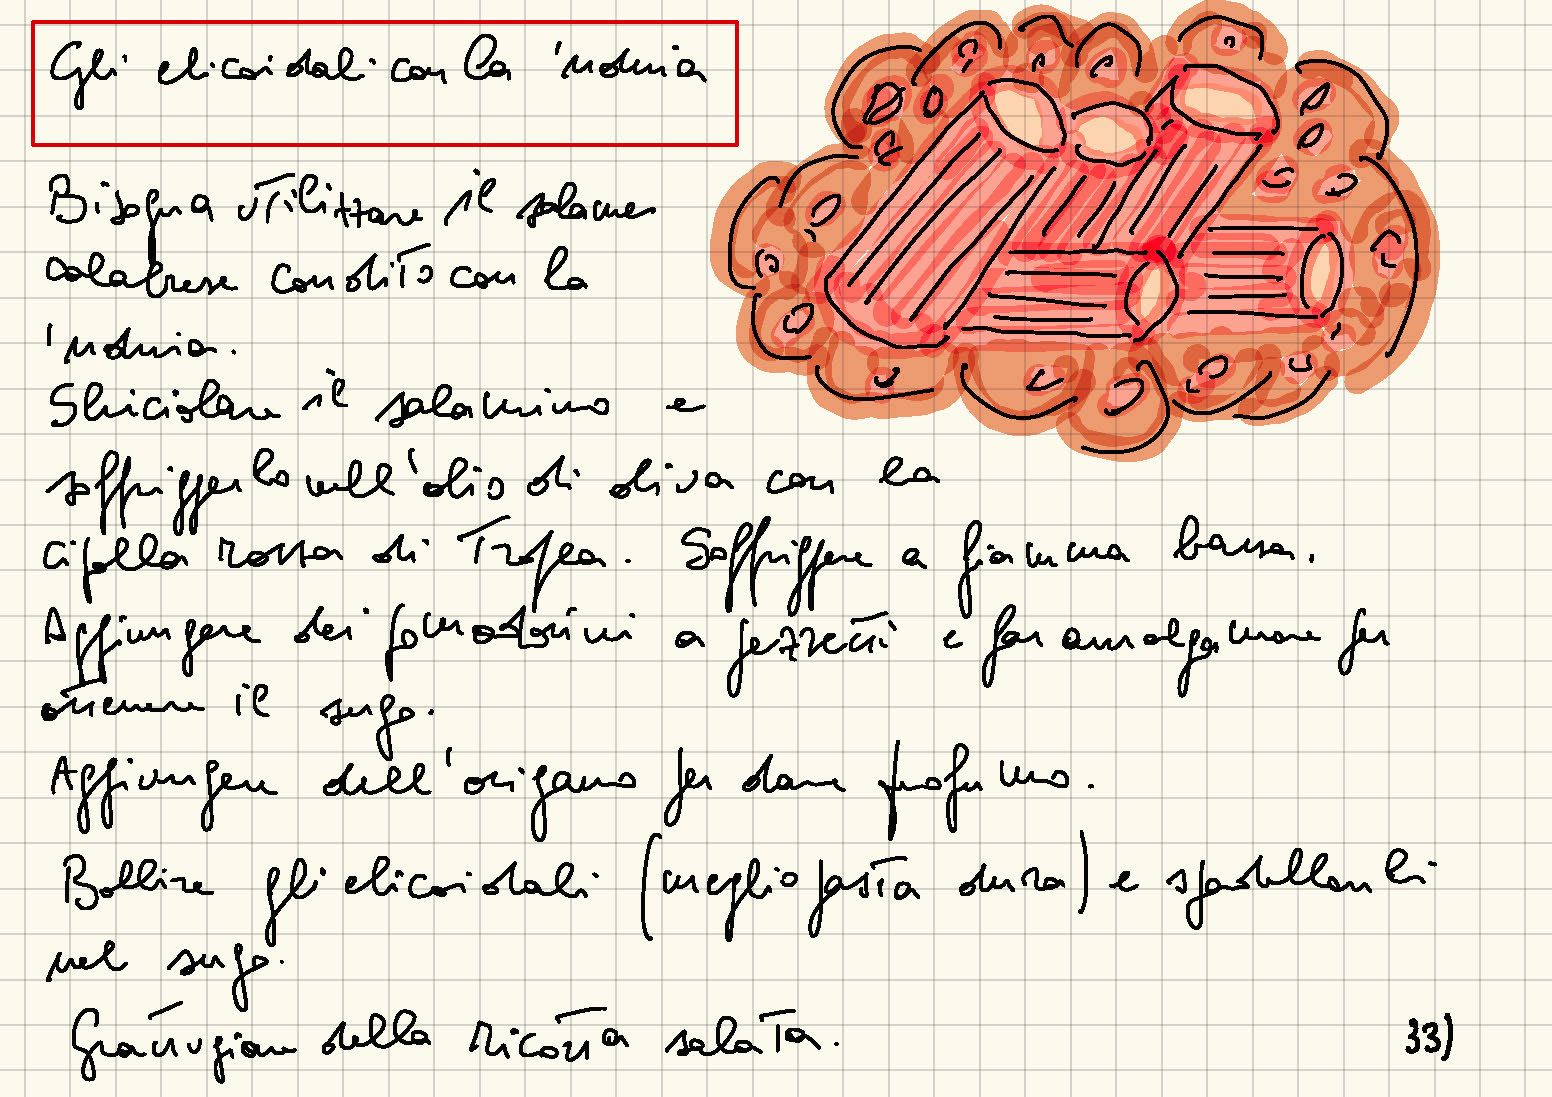 Gli elicoidali con la 'nduia
Bisogna utilizzare il salame
calabrese condito con la
'nduia.
Sbriciolare il salamino e
soffriggerlo nell'olio di oliva con la
cipolla rossa di Tropea. Soffriggere a fiamma bassa.
Aggiungere dei pomodorini a pezzetti e far amalgamare per
ottenere il sugo.
Aggiungere dell'origano per dare profumo.
Bollire gli elicoidali (meglio pasta dura) e spadellarli
nel sugo.
Grattugiare della ricotta salata.
33)